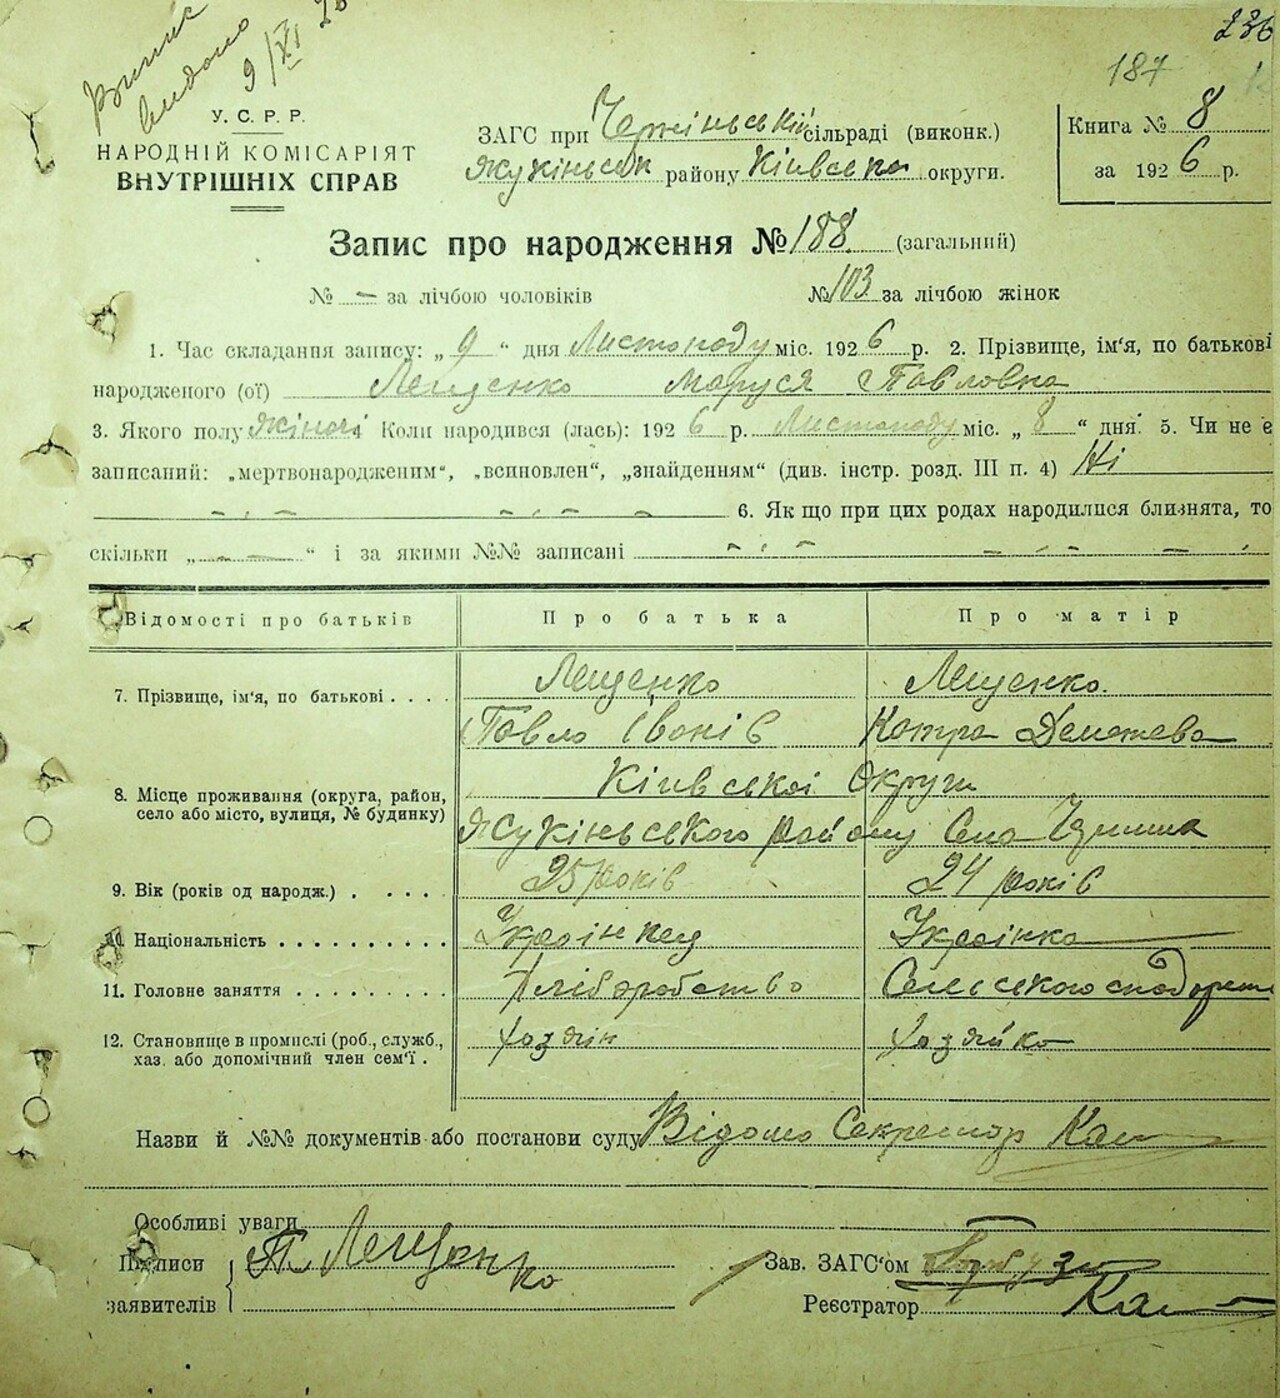 Випис
видано
9/XI 26
236
187
У. С. Р. Р.
НАРОДНІЙ КОМІСАРІЯТ
ВНУТРІШНІХ СПРАВ
ЗАГС при сільраді (виконк.)
району Київська округи.
Книга № 8
за 1926 р.
Запис про народження № 188 (загальний)
№ — за лічбою чоловіків
№ 103 за лічбою жінок
1. Час складання запису: „ 9 “ дня Листопаду міс. 1926 р. 2. Прізвище, ім'я, по батькові
народженого (ої) Лещенко Маруся Павловна
3. Якого полу жіночі 4 Коли народився (лась): 1926 р. Листопаду міс. „ 8 “ дня. 5. Чи не є
записаний: „мертвонародженим“, „всиновлен“, „знайденням“ (див. інстр. розд. III п. 4) Ні
6. Як що при цих родах народилися близнята, то
скільки „ — “ і за якими №№ записані
Відомості про батьків Про батька Про матір
7. Прізвище, ім'я, по батькові . . . . Лещенко Лещенко.
Павло Іванів Катра
8. Місце проживання (округа, район,
село або місто, вулиця, № будинку)
Київської Округи
Жукінського Району Село
9. Вік (років од народж.) . . . . 25 років 24 років
10. Національність . . . . . . . . . . Українец Українка
11. Головне заняття . . . . . . . . . Хліборобство Сельського
12. Становище в промислі (роб., служб.,
хаз. або допомічний член сем'ї .
хозяін хозяйка
Назви й №№ документів або постанови суду Відомо Секретар
Особливі уваги
Підписи
заявителів
П. Лещенко
Зав. ЗАГС'ом
Реєстратор